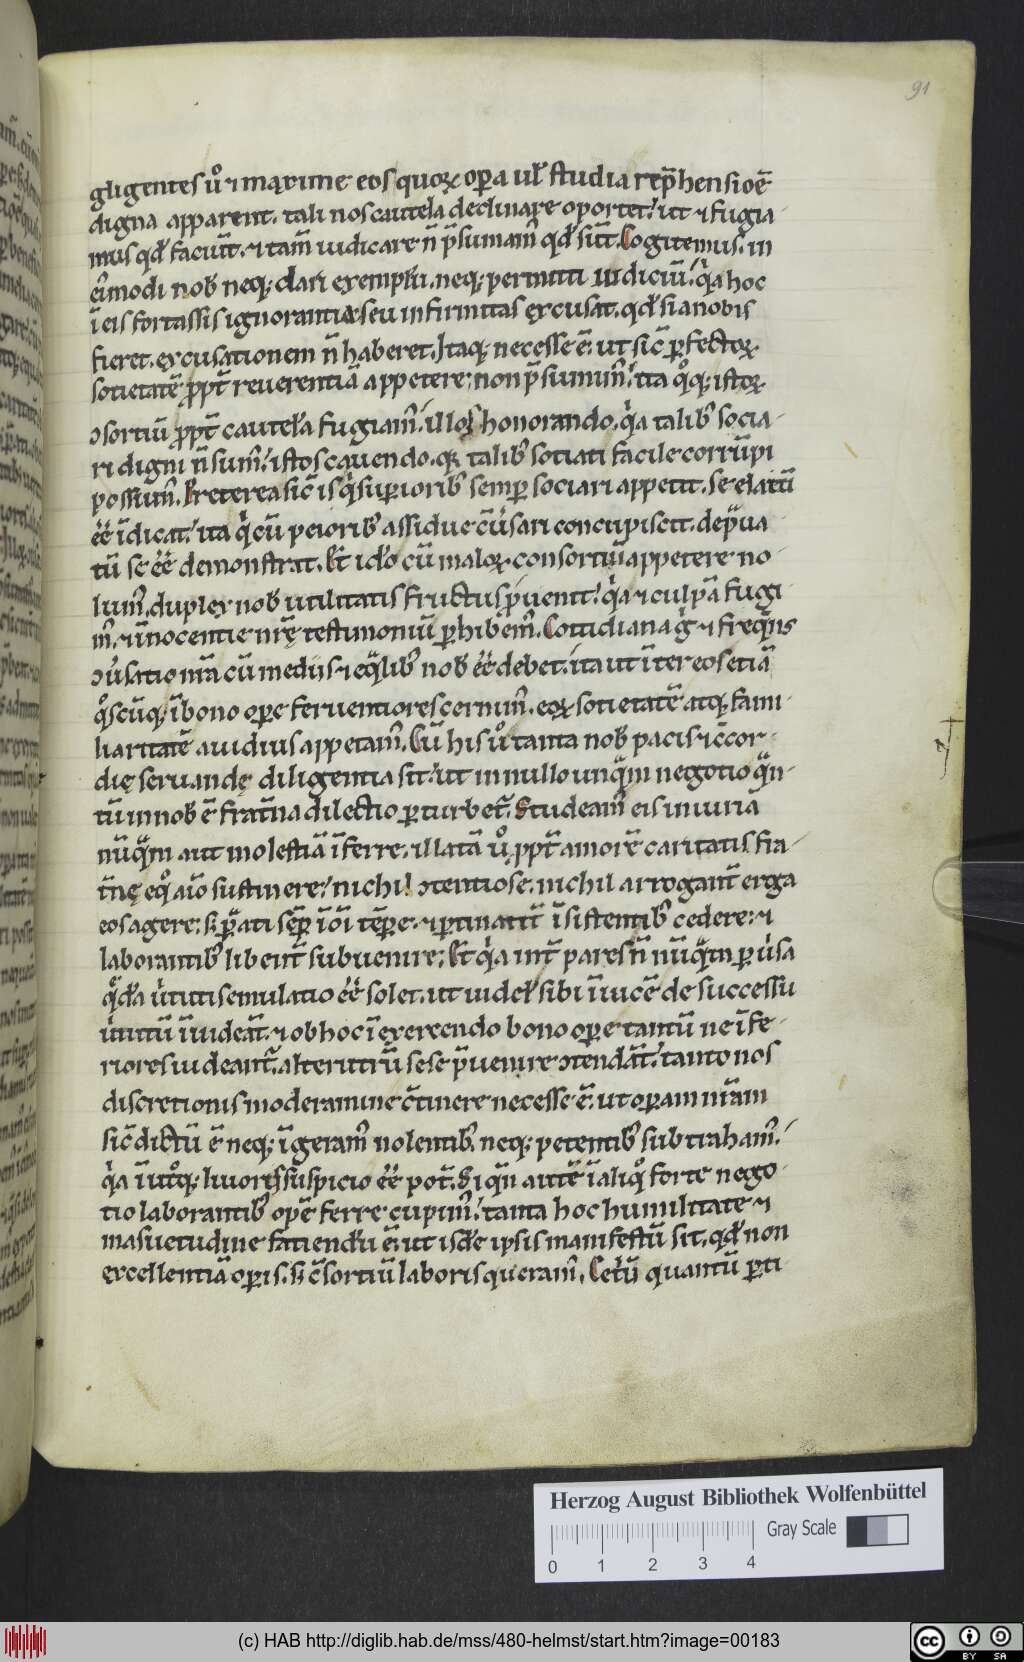 91
gligentes ů ⁊ maxime eos quoꝝ oꝑa ul̵ studia rep̄hensioē
digna apparent. tali nos cautela declinare oportet. ut ⁊ fugia-
mus qd̵ faciūt. ⁊ tam̄ iudicare n̄ p̄sumam̄ qd̵ sūt. Cogitemus. in
ei᷒modi nob̵ neq; clari exempli. neq; permitti iudiciū. q̇a hoc
ī eis fortassis ignorantia seu infirmitas ęxcusat. qd̵ si a nobis
fieret. excusationem n̄ haberet. Itaq; necesse ē. ut sic̄ ꝑfectoꝝ
sotietatē ꝓpt̄ reuerentiā appetere; non p̄sumim᷒. ita q̊q; istoꝝ
ↄsortiū ꝓpt̄ cautelā fugiam᷒. illos honorando. q̇a talib᷒ socia-
ri digni n̄ sum᷒. istos cauendo. q̇a talib᷒ sotiati facile corrūpi
possum᷒. Preterea sic̄ is q̇ suꝑiorib᷒ semꝑ sociari appetit. se elatū
ēē īdicat. ita q̇ cū peiorib᷒ assidue cūsari concupiscit. dep̄ua-
tū se ēē demonstrat. Et id̵o cū maloꝝ consortiū appetere no-
lum᷒. duplex nob̵ utilitatis fructus ꝓuenit. q̇a ⁊ culpā fugi-
m᷒. ⁊ īnocentie nr̄ę testimoniū ꝑhibem᷒. Cottidiana g̊ ⁊ freq̄ns
ↄūsatio nr̄a cū mediis ⁊ eq̄lib᷒ nob̵ ēē debet. ita ut īter eos etiā
q̊scūq; ī bono oꝑe feruentiores cernim᷒. eoꝝ sotietatē atq; fami-
liaritatē auidius appetam᷒. Cū his ů tanta nob̵ pacis ⁊ ↄ̄cor-
dię seruandę diligentia sit. ut in nullo unq̄m negotio q̄n-
tū in nob̵ ē frat̄na dilectio ꝑturbet᷑. Studeam᷒ eis iniuria
nūq̄m aut molestiā īferre. illatā ů ꝓpt̄ amorē caritatis fra-
t̄nę eq̊ aīo sustinere. nichil ↄtentiose. nichil arrogant̄ erga
eos agere; s; p̄ati sēꝑ ī oī tēꝑe. ⁊ ꝑtinatit̄ īsistentib᷒ cedere; ⁊
laborantib᷒ libent̄ subuenire; Et q̇a int̄ pares n̄ nūq̄m ꝑu̇sa
q̄d̵a u̇tutis emulatio ēē solet. ut uidel̵ sibi īuicē de successu
u̇tutū īuideāt. ⁊ ob hoc ī exercendo bono oꝑe tantū ne īfe-
riores uideant᷑. alterutrū sese p̄uenire ↄtendāt. tanto nos
discretionis moderamine ↄ̄tinere necesse ē. ut oꝑam nr̄am
sic̄ dictū ē neq; īgeram᷒ nolentib᷒. neq; petentib᷒ subtraham᷒.
q̇a ī ut̊q; liuoris suspicio ēē pot̄. Siq̄n autē ī aliq̊ forte nego-
tio laborantib᷒ opē ferre cupim᷒. tanta hoc humilitate ⁊
māsuetudine fatiendū ē. ut isd̵e ipsis manifestū sit. qd̵ non
excellentiā oꝑis. s; ↄ̄sortiū laboris queram᷒. Cet̄ū quantū ꝑti-
Herzog August Bibliothek Wolfenbüttel
Gray Scale
0 1 2 3 4
(c) HAB http://diglib.hab.de/mss/480-helmst/start.htm?image=00183
cc BY SA